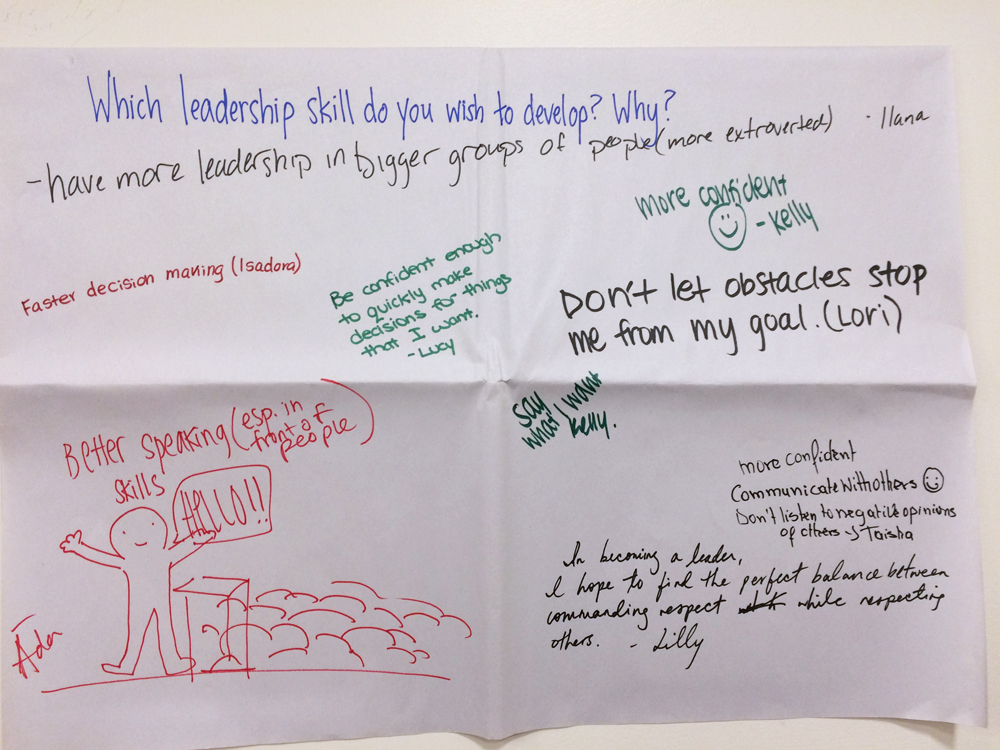 Which leadership skill do you wish to develop? Why?
-have more leadership in bigger groups of people (more extroverted) · Ilana
more confident
- Kelly
Faster decision making (Isadora)
Be confident enough
to quickly make
decisions for things
that I want.
- Lucy
Don't let obstacles stop
me from my goal. (Lori)
say
what I want
Kelly.
Better speaking (esp. in
front of
people)
skills
HELLO!!
more confident
Communicate with others
Don't listen to negative opinions
of others - Taisha
In becoming a leader,
I hope to find the perfect balance between
commanding respect while respecting
others. - Lilly